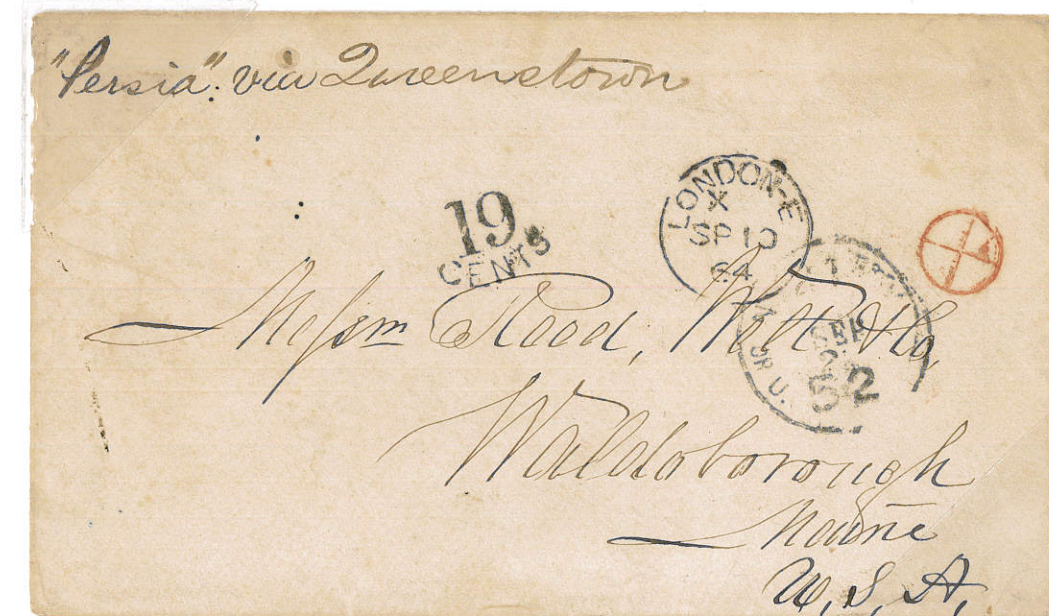 "Persia" via Queenstown
19
CENTS
LONDON-E
X
SP 10
64
SEP
52
OR U.
Messrs Reed, Welt & Co,
Waldoborough
Maine
U, S, A,